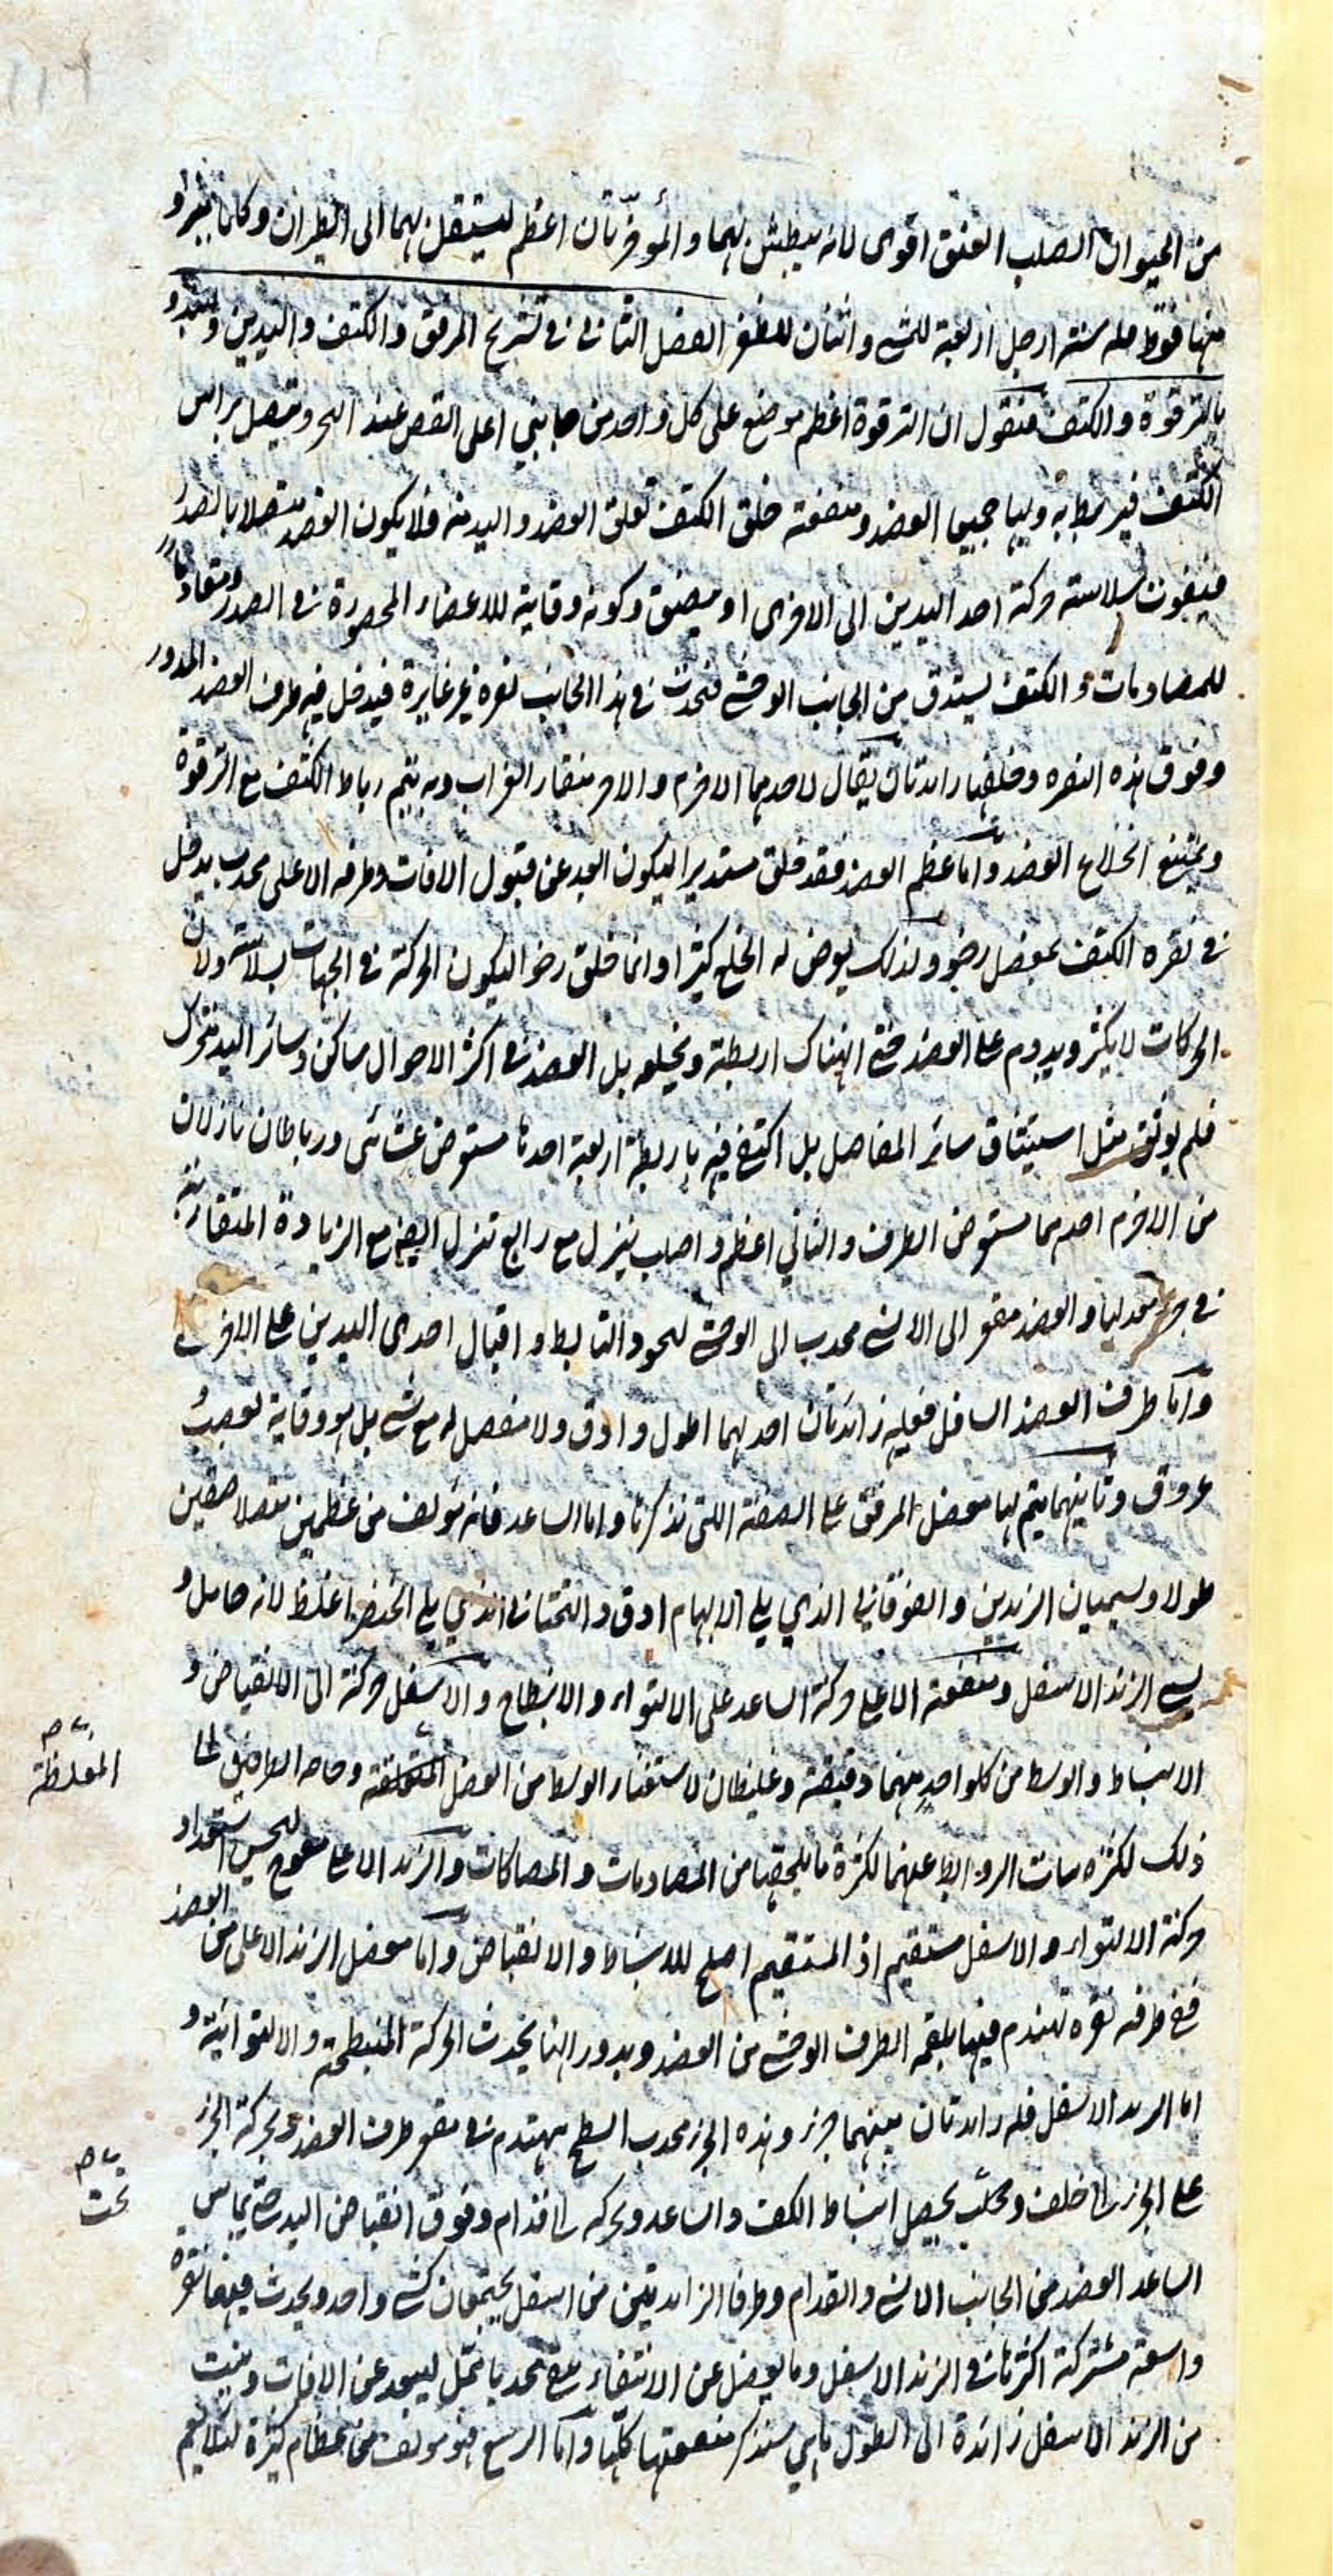 من الحيوان الصلب العنق اقوى لانه يبطش بهما والمؤخرتان اعظم ليستقل بهما الى الطيران وكان
منها فوقط فله ستة ارجل اربعة للمشى واثنان للطفر الفصل الثانى فى تشريح المرفق والكتف واليدين ولنبدو
بالترقوة والكتف فنقول ان الترقوة اعظم موضع على كل واحد من جانبي اعلى القص عند النحر ويتصل براس
الكتف فيرتبط به وبها جميعا العضد ومنفعته خلق الكتف تعلق العضد واليد منه فلا يكون العضد متصلا بالصدر
فيفوت سلاسته حركة احد اليدين الى الاخرى او يضيق وكونه وقاية للاعضاء المحصورة فى الصدر
للمصادمات والكتف يستدق من الجانب الوحشى فتحدث فى هذا الجانب نقره غير غايرة فيدخل فيه طرف العضد المدور
وفوق هذه النقره وخلفها زايدتان يقال لاحدهما الاخرم والاخر منقار الغراب وبه يتم رباط الكتف مع الترقوة
ويمتنع انخلاع العضد واما عظم العضد فقد خلق مستديرا ليكون ابعد عن قبول الافات وطرفه الاعلى محدب يدخل
فى نقره الكتف بمفصل رخو ولذلك يعرض له الخلع كثيرا وانما خلق رخوا ليكون الحركة فى الجهات بسلاسة ولان
الحركات لا يكثر ويدوم على العضد حتى انهتاك اربطة وتخيله بل العضد فى اكثر الاحوال ساكن وسائر اليد متحرك
فلم يوثق مثل استيثاق سائر المفاصل بل اكتفى فيه باربطة اربعة احدها مستعرض غشائى ورباطان نازلان
من الاخرم احدهما مستعرض الطرف والثاني اعظم واصلب ينزل مع رابع تنزل ايضا مع الزيادة المنقارية
فى والعضد مقعر الى الانسى محدب الى الوحشى واقبال احدى اليدين على الاخرى
واما طرف العضد السافل فعليه زائدتان احدهما اطول وادق ولا مفصل له مع شى بل هو وقاية لعصب
عروق وثانيهما يتم بها مفصل المرفق على الصفة اللتى نذكرها واما الساعد فانه مؤلف من عظمين متلاصقين
طولا ويسميان الزندين والفوقاني الذي يلى الابهام ادق والتحتانى الذي يلى الخنصر اغلظ لانه حامل و
يسمى الزند الاسفل ومنفعة الاعلى حركة الساعد على الالتواء والانبطاح والاسفل حركة الى الانقباض و
الانبساط والوسط من كلواحد منهما دقيقة وغليظان لاستغناء الوسط من العضل المغلظة وحاجه الطرفين الى
ذلك لكثرة نبات الروابط عنهما لكثرة ما يلحقها من المصادمات والمصاكات والزند الاعلى معوج ليحسن استعداد
حركة الالتواء والاسفل مستقيم اذ المستقيم اصلح للانبساط والانقباض واما مفصل الزند الاعلى من العضد
ففى طرفه نقره تهندم فيها لقمه الطرف الوحشى من العضد وبدورانها يحدث الحركة المنبطحة والالتوائية و
اما الزند الاسفل فله زايدتان بينهما حز وهذه الحز محدب السطح يهتدم فى مقعر طرف العضد وبحركة الحز
على الحز الى خلف وتحت يحصل انبساط الكف والساعد وبحركه الى قدام وفوق انقباض اليد حتى يماس
الساعد العضد من الجانب الانسى والقدام وطرفا الزايدتين من اسفل يجتمعان كشى واحد ويحدث فيهما نقرة
واسعة مشتركة اكثرها فى الزند الاسفل وما يفضل عن الانتقاء يبقى محدبا ليبعد عن الافات وينبت
من الزند الاسفل زائدة الى الطول ماهى ستذكر منفعتها كلها واما الرسغ فهو مؤلف من عظام كثيرة لئلا يعم
المغلظة
تحت